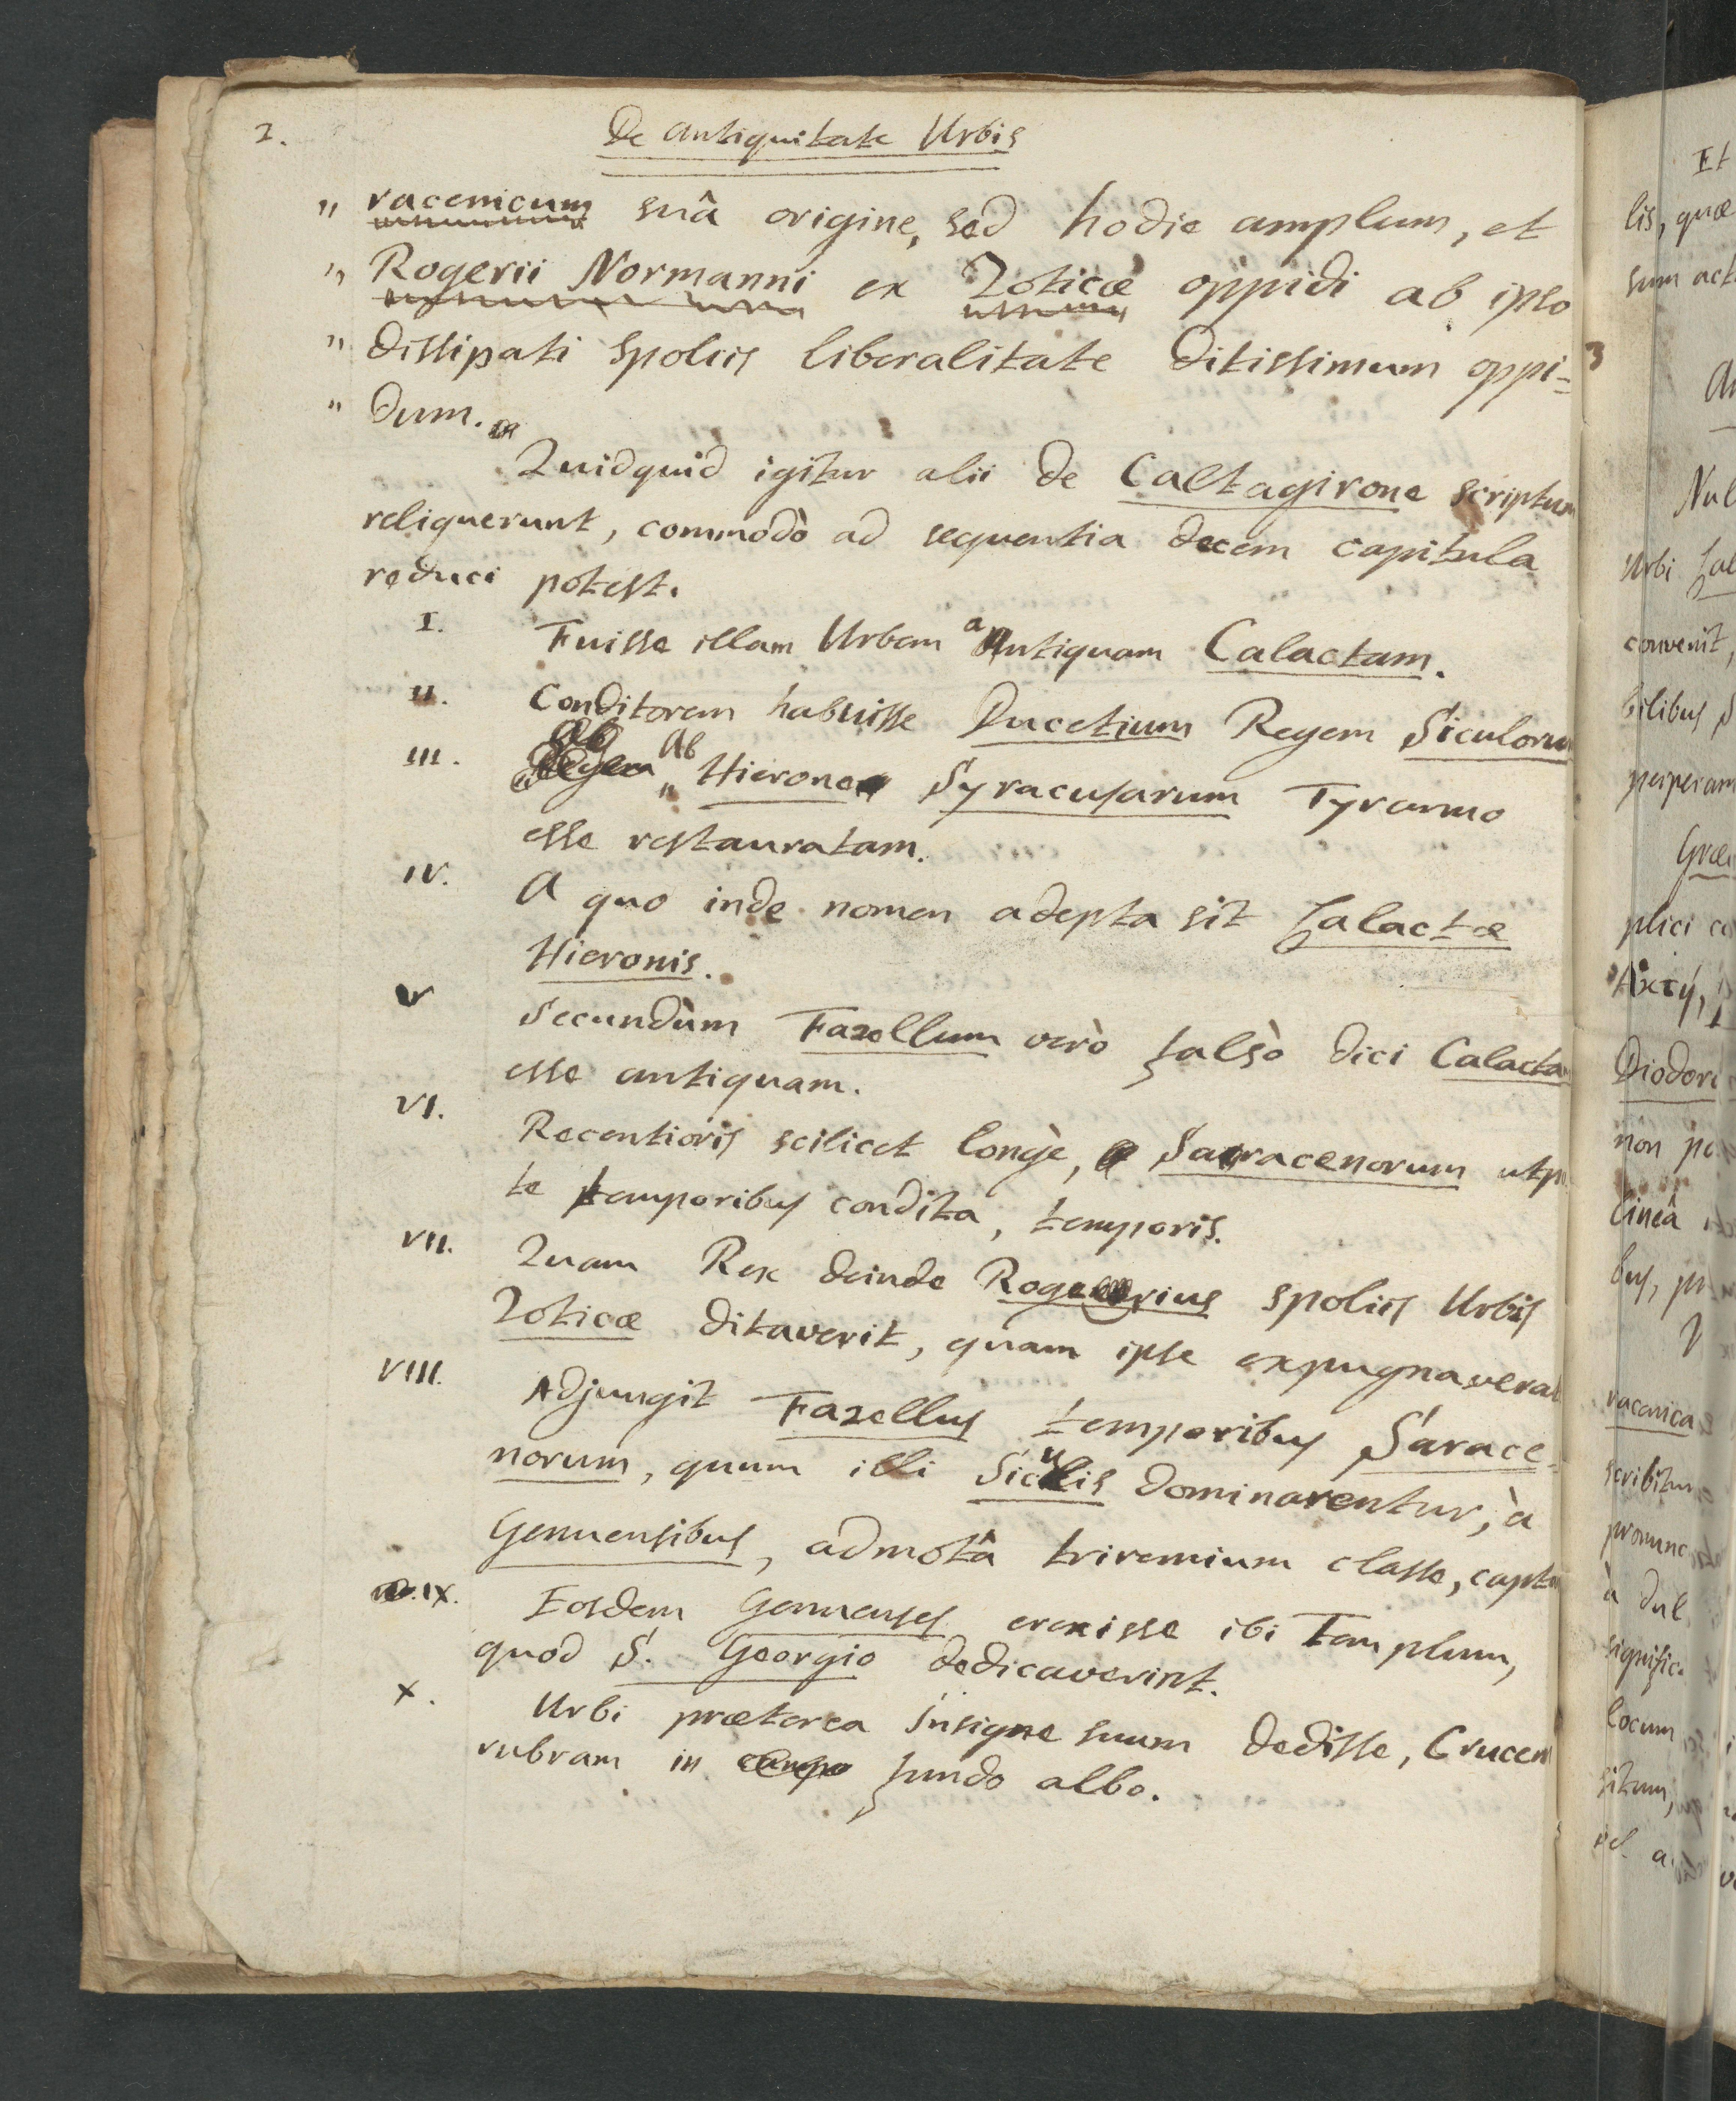 2. De antiquitate Urbis
" racenicum suâ origine, sed hodie amplum, et
" Rogerii Normanni ex Zoticæ oppidi ab ipso
" dissipati spoliis liberalitate ditissimum oppi=
" dum.
Quidquid igitur alii de Caltagirone scriptum
reliquerunt, commodò ad sequentia decem capitula
reduci potest.
I. Fuisse illam Urbem antiquam Calactam.
II. Conditorem habuisse Ducetium Regem Siculorum
III. Ab Hierone Syracusarum Tyranno
esse restauratam.
IV. A quo inde nomen adepta sit Calactæ
Hieronis.
V Secundùm Fazellum verò falsò dici Calactam
esse antiquam.
VI. Recentioris scilicet longè, Sarracenorum utpo
te temporibus condita, temporis.
VII. Quam Rex deinde Rogerius spoliis Urbis
Zoticæ ditaverit, quam ipse expugnaverat
VIII. Adjungit Fazellus temporibus Sarace=
norum, quum illi Siculis dominarentur, à
Genuensibus, admotâ triremium classe, captam
IX. Eosdem Genuenses erexisse ibi Templum,
quod S. Georgio dedicaverint.
X. Urbi præterea Insigne suum dedisse, Crucem
rubram in fundo albo.
3
Et
lis, quæ
sum act
Nul
Urbi Cal
convenit,
bilibus
perperam
Græ
plici
Diodor
non po
lineâ
bus, pr
racenica
scribitur
pronunc
à dul
signific
locum
situm,
vel a